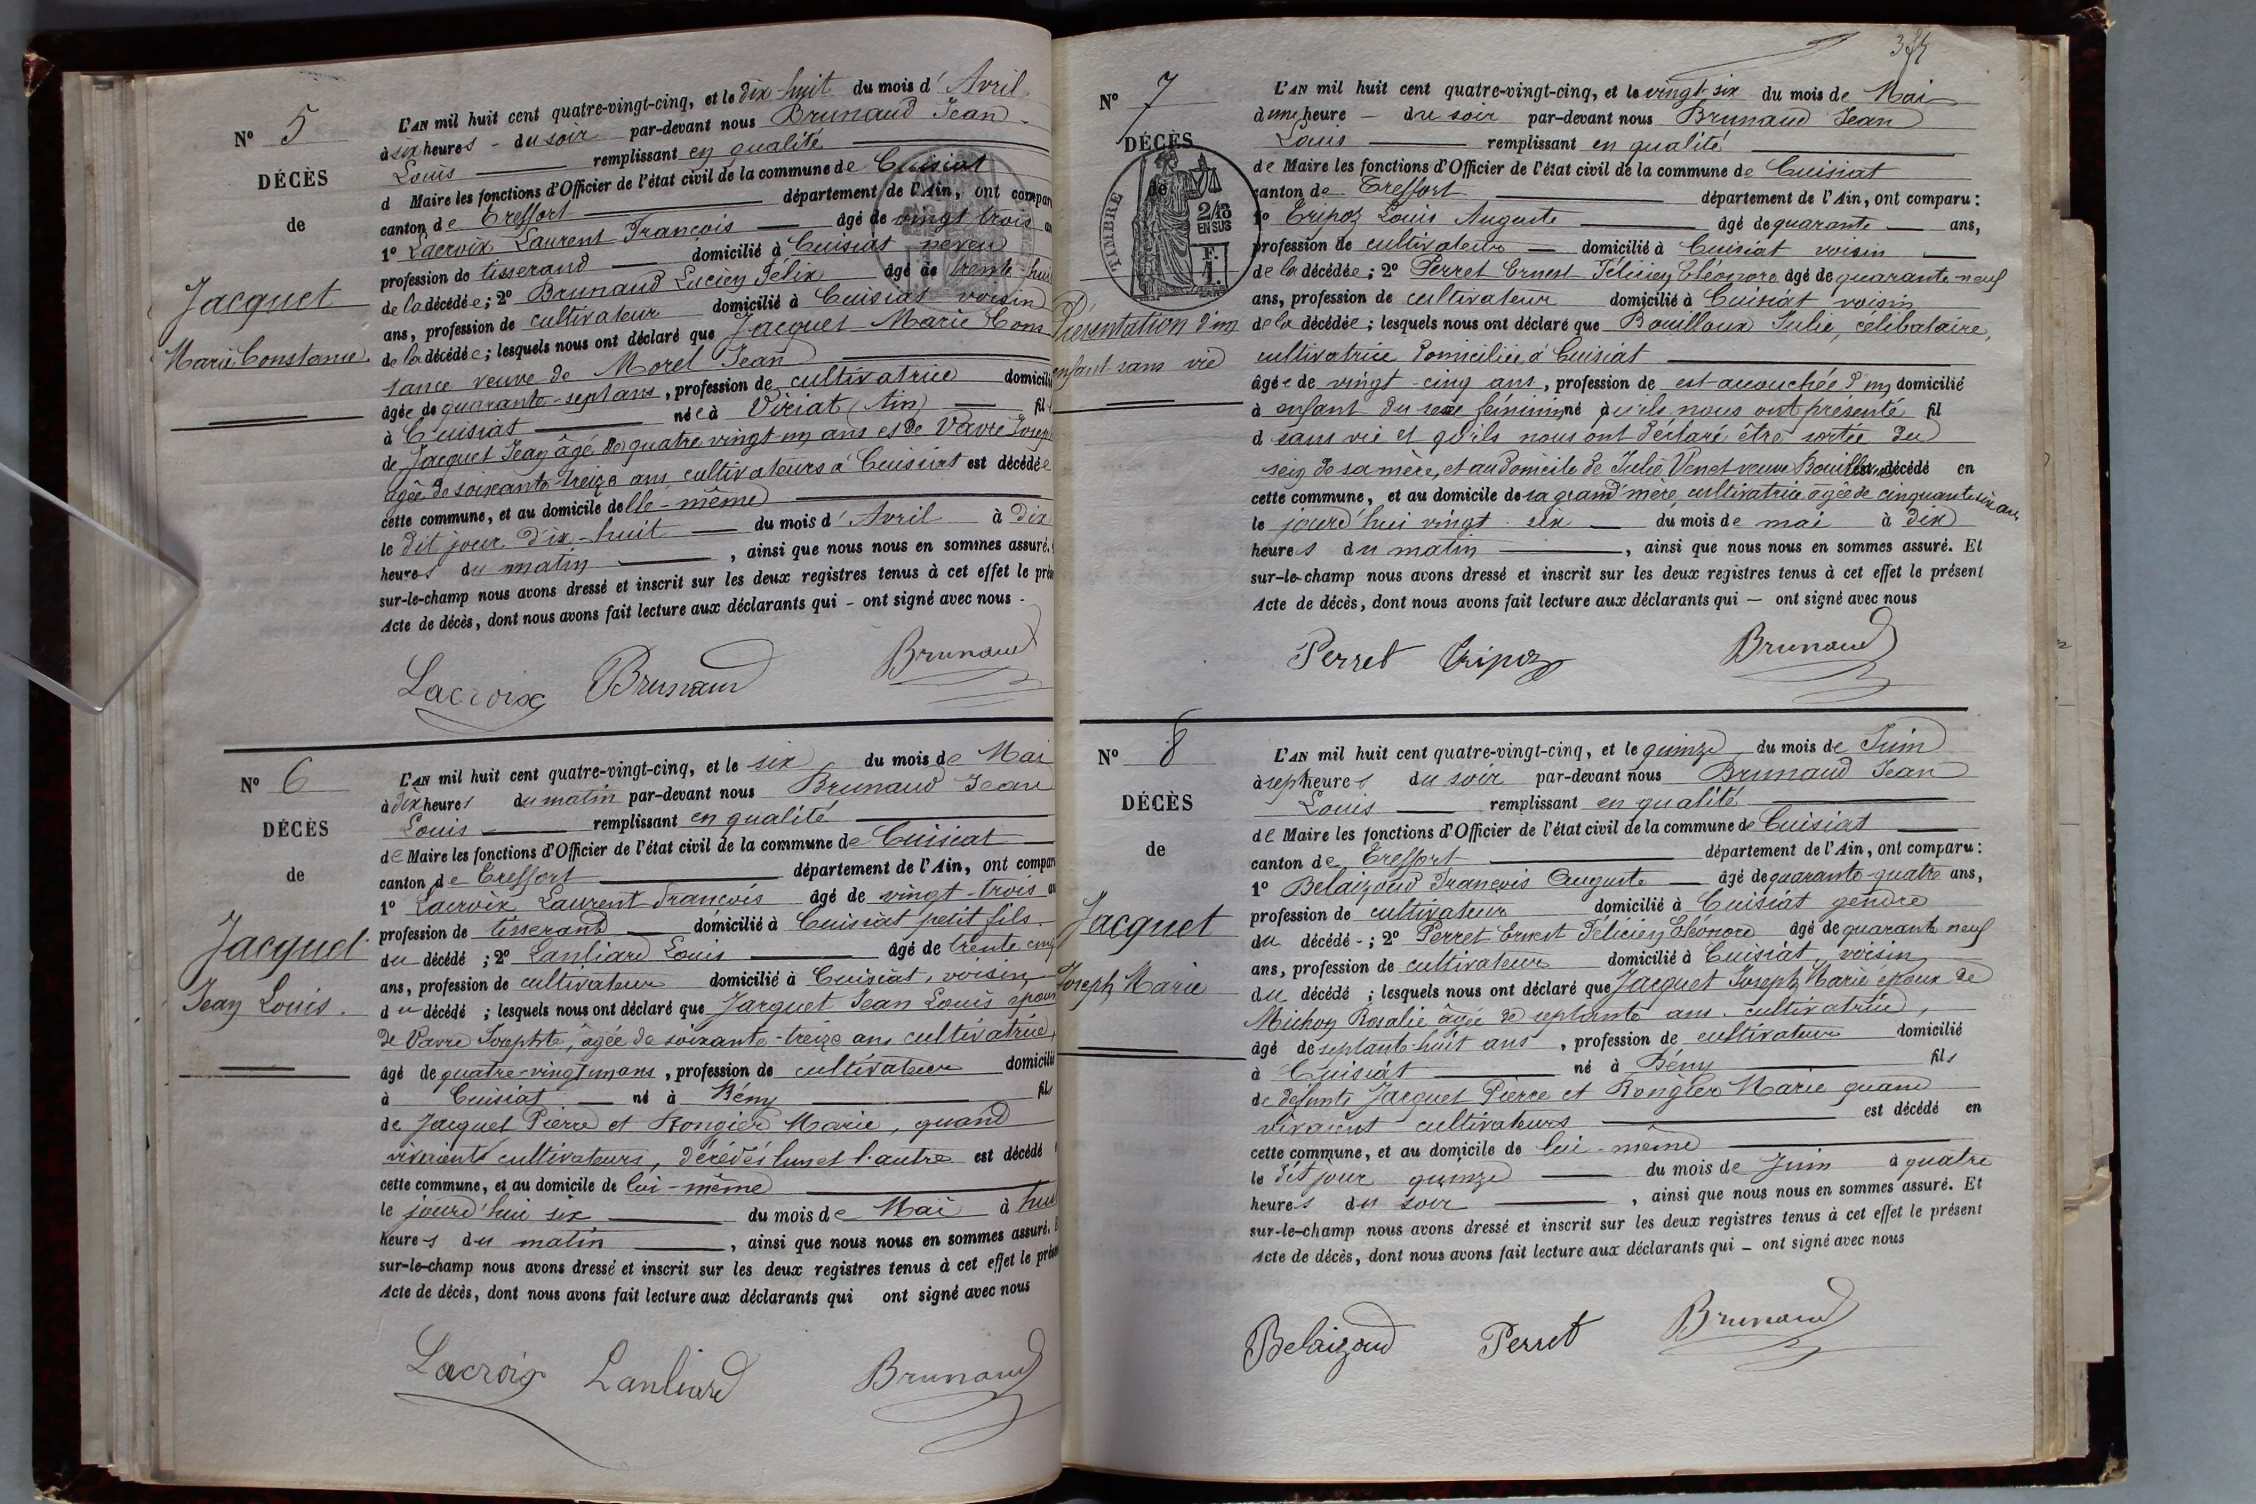 N° 5
DÉCÈS
de
Jacquet
Marie Constance
L'AN mil huit cent quatre-vingt-cinq, et le dix-huit du mois d'Avril
à six heures - du soir par-devant nous Brunaud Jean
Louis remplissant en qualité
d Maire les fonctions d'Officier de l'état civil de la commune de Cuisiat
canton de Treffort département de l'Ain, ont compar
1° Lacroix Laurent François âgé de vingt trois an
profession de tisserand domicilié à Cuisiat neveu
de la décédée; 2° Brunaud Lucien Félix âgé de trente-huit
ans, profession de cultivateur domicilié à Cuisiat voisin
de la décédée; lesquels nous ont déclaré que Jacquet Marie Cons
tance veuve de Morel Jean
âgée de quarante-sept ans, profession de cultivatrice domicilié
à Cuisiat née à Viriat (Ain) fil
de Jacquet Jean âgé de quatre vingt un ans et de Vavre Joseph
âgée de soixante-treize ans cultivateurs à Cuisiat est décédée
cette commune, et au domicile delle-même
le dit jour dix-huit du mois d'Avril à dix
heures du matin, ainsi que nous nous en sommes assuré.
sur-le-champ nous avons dressé et inscrit sur les deux registres tenus à cet effet le prés
Acte de décès, dont nous avons fait lecture aux déclarants qui - ont signé avec nous.
Lacroix Brunaud Brunaud
N° 6
DÉCÈS
de
Jacquet
Jean Louis.
L'AN mil huit cent quatre-vingt-cinq, et le six du mois de Mai
à dix heures du matin par-devant nous Brunaud Jean
Louis remplissant en qualité
de Maire les fonctions d'Officier de l'état civil de la commune de Cuisiat
canton de Treffort département de l'Ain, ont compar
1° Lacroix Laurent François âgé de vingt-trois an
profession de tisserand domicilié à Cuisiat petit fils
du décédé; 2° Lanliard Louis âgé de trente cinq
ans, profession de cultivateur domicilié à Cuisiat, voisin
du décédé; lesquels nous ont déclaré que Jacquet Jean Louis époux
de Vavre Josephte, âgée de soixante-treize ans cultivatrice,
âgé de quatre-vingt un ans, profession de cultivateur domicilié
à Cuisiat né à Bény fils
de Jacquet Pierre et Rongier Marie, quand
vivaients cultivateurs, décédés l'un et l'autre est décédé
cette commune, et au domicile de lui-même
le jourd'hui six du mois de Mai à huit
heures du matin, ainsi que nous nous en sommes assuré. E
sur-le-champ nous avons dressé et inscrit sur les deux registres tenus à cet effet le prése
Acte de décès, dont nous avons fait lecture aux déclarants qui ont signé avec nous
Lacroix Lanliard Brunaud
N° 7
DÉCÈS
de
TIMBRE
2/10
EN SUS
F.
1.
Présentation d'un
enfant sans vie
L'AN mil huit cent quatre-vingt-cinq, et le vingt-six du mois de Mai
à une heure - du soir par-devant nous Brunaud Jean
Louis remplissant en qualité
de Maire les fonctions d'Officier de l'état civil de la commune de Cuisiat
canton de Treffort département de l'Ain, ont comparu:
1° Tripoz Louis Auguste âgé de quarante ans,
profession de cultivateur domicilié à Cuisiat voisin
de la décédée; 2° Perret Ernest Félicien Eléonore âgé de quarante neuf
ans, profession de cultivateur domicilié à Cuisiat voisin
de la décédée; lesquels nous ont déclaré que Bouilloux Julie, célibataire,
cultivatrice domiciliée à Cuisiat
âgée de vingt-cinq ans, profession de est accouchée d'un domicilié
à enfant du sexe féminin né à qu'ils nous ont présenté fil
d sans vie et qu'ils nous ont déclaré être sortie du
sein de sa mère, et au domicile de Julie Venet veuve Bouilloux est décédé en
cette commune, et au domicile de sa grand'mère, cultivatrice âgée de cinquante six ans
le jourd'hui vingt-six du mois de mai à dix
heures du matin, ainsi que nous nous en sommes assuré. Et
sur-le-champ nous avons dressé et inscrit sur les deux registres tenus à cet effet le présent
Acte de décès, dont nous avons fait lecture aux déclarants qui — ont signé avec nous
Perret Tripoz Brunaud
N° 8
DÉCÈS
de
Jacquet
Joseph Marie
L'AN mil huit cent quatre-vingt-cinq, et le quinze du mois de Juin
à sept heures du soir par-devant nous Brunaud Jean
Louis remplissant en qualité
de Maire les fonctions d'Officier de l'état civil de la commune de Cuisiat
canton de Treffort département de l'Ain, ont comparu:
1° Belaizoud François Auguste âgé de quarante-quatre ans,
profession de cultivateur domicilié à Cuisiat gendre
du décédé; 2° Perret Ernest Félicien Eléonore âgé de quarante neuf
ans, profession de cultivateur domicilié à Cuisiat, voisin
du décédé; lesquels nous ont déclaré que Jacquet Joseph Marie époux de
Michon Rosalie âgée de septante ans cultivatrice,
âgé de septante-huit ans, profession de cultivateur domicilié
à Cuisiat né à Bény fils
de défunts Jacquet Pierre et Rongier Marie quand
vivaient cultivateurs est décédé en
cette commune, et au domicile de lui-même
le dit jour quinze du mois de Juin à quatre
heures du soir, ainsi que nous nous en sommes assuré. Et
sur-le-champ nous avons dressé et inscrit sur les deux registres tenus à cet effet le présent
Acte de décès, dont nous avons fait lecture aux déclarants qui - ont signé avec nous
Belaizoud Perret Brunaud